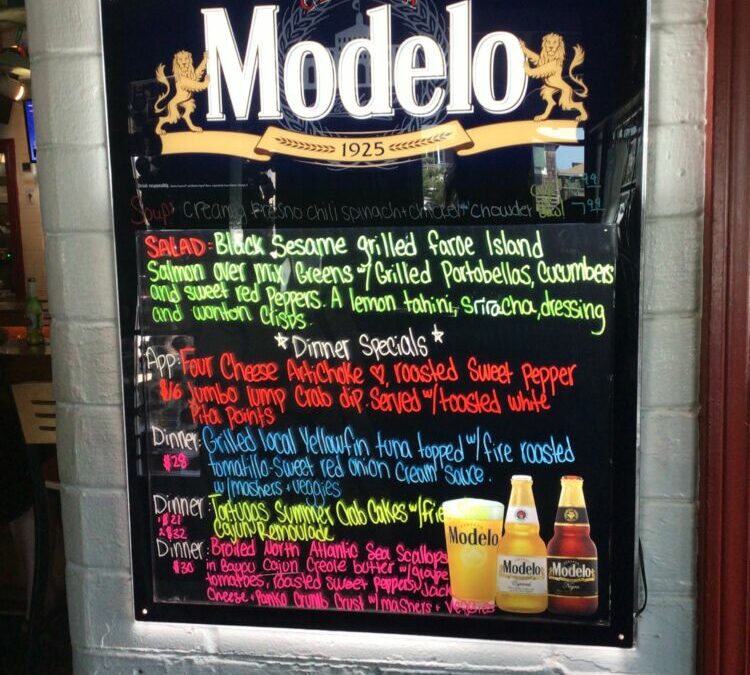 Modelo
1925
Soup: Creamy Fresno chili spinach + chicken chowder Bowl 7.99
SALAD: Black Sesame grilled Faroe Island
Salmon over mix Greens w/ Grilled Portabellas, Cucumbers
and sweet red Peppers. A lemon tahini, Sriracha, dressing
and wonton Crisps.
*Dinner Specials*
App: Four Cheese Artichoke ♡, roasted Sweet Pepper
$16 Jumbo lump Crab dip. Served w/ toasted white
Pita Points
Dinner: Grilled local Yellowfin tuna topped w/ fire roasted
$28 tomatillo-Sweet red onion Cream Sauce.
w/ mashers + veggies
Dinner: Tortugas Summer Crab Cakes w/ frie
1-$21 Cajun Remoulade
2-$32
Dinner: Broiled North Atlantic Sea Scallops
$30 in Bayou Cajun Creole butter w/ grape
tomatoes, roasted sweet Peppers, Jack
Cheese + Panko Crumb Crust w/ mashers + Veggies
Modelo
Modelo
Especial
Modelo
Negra